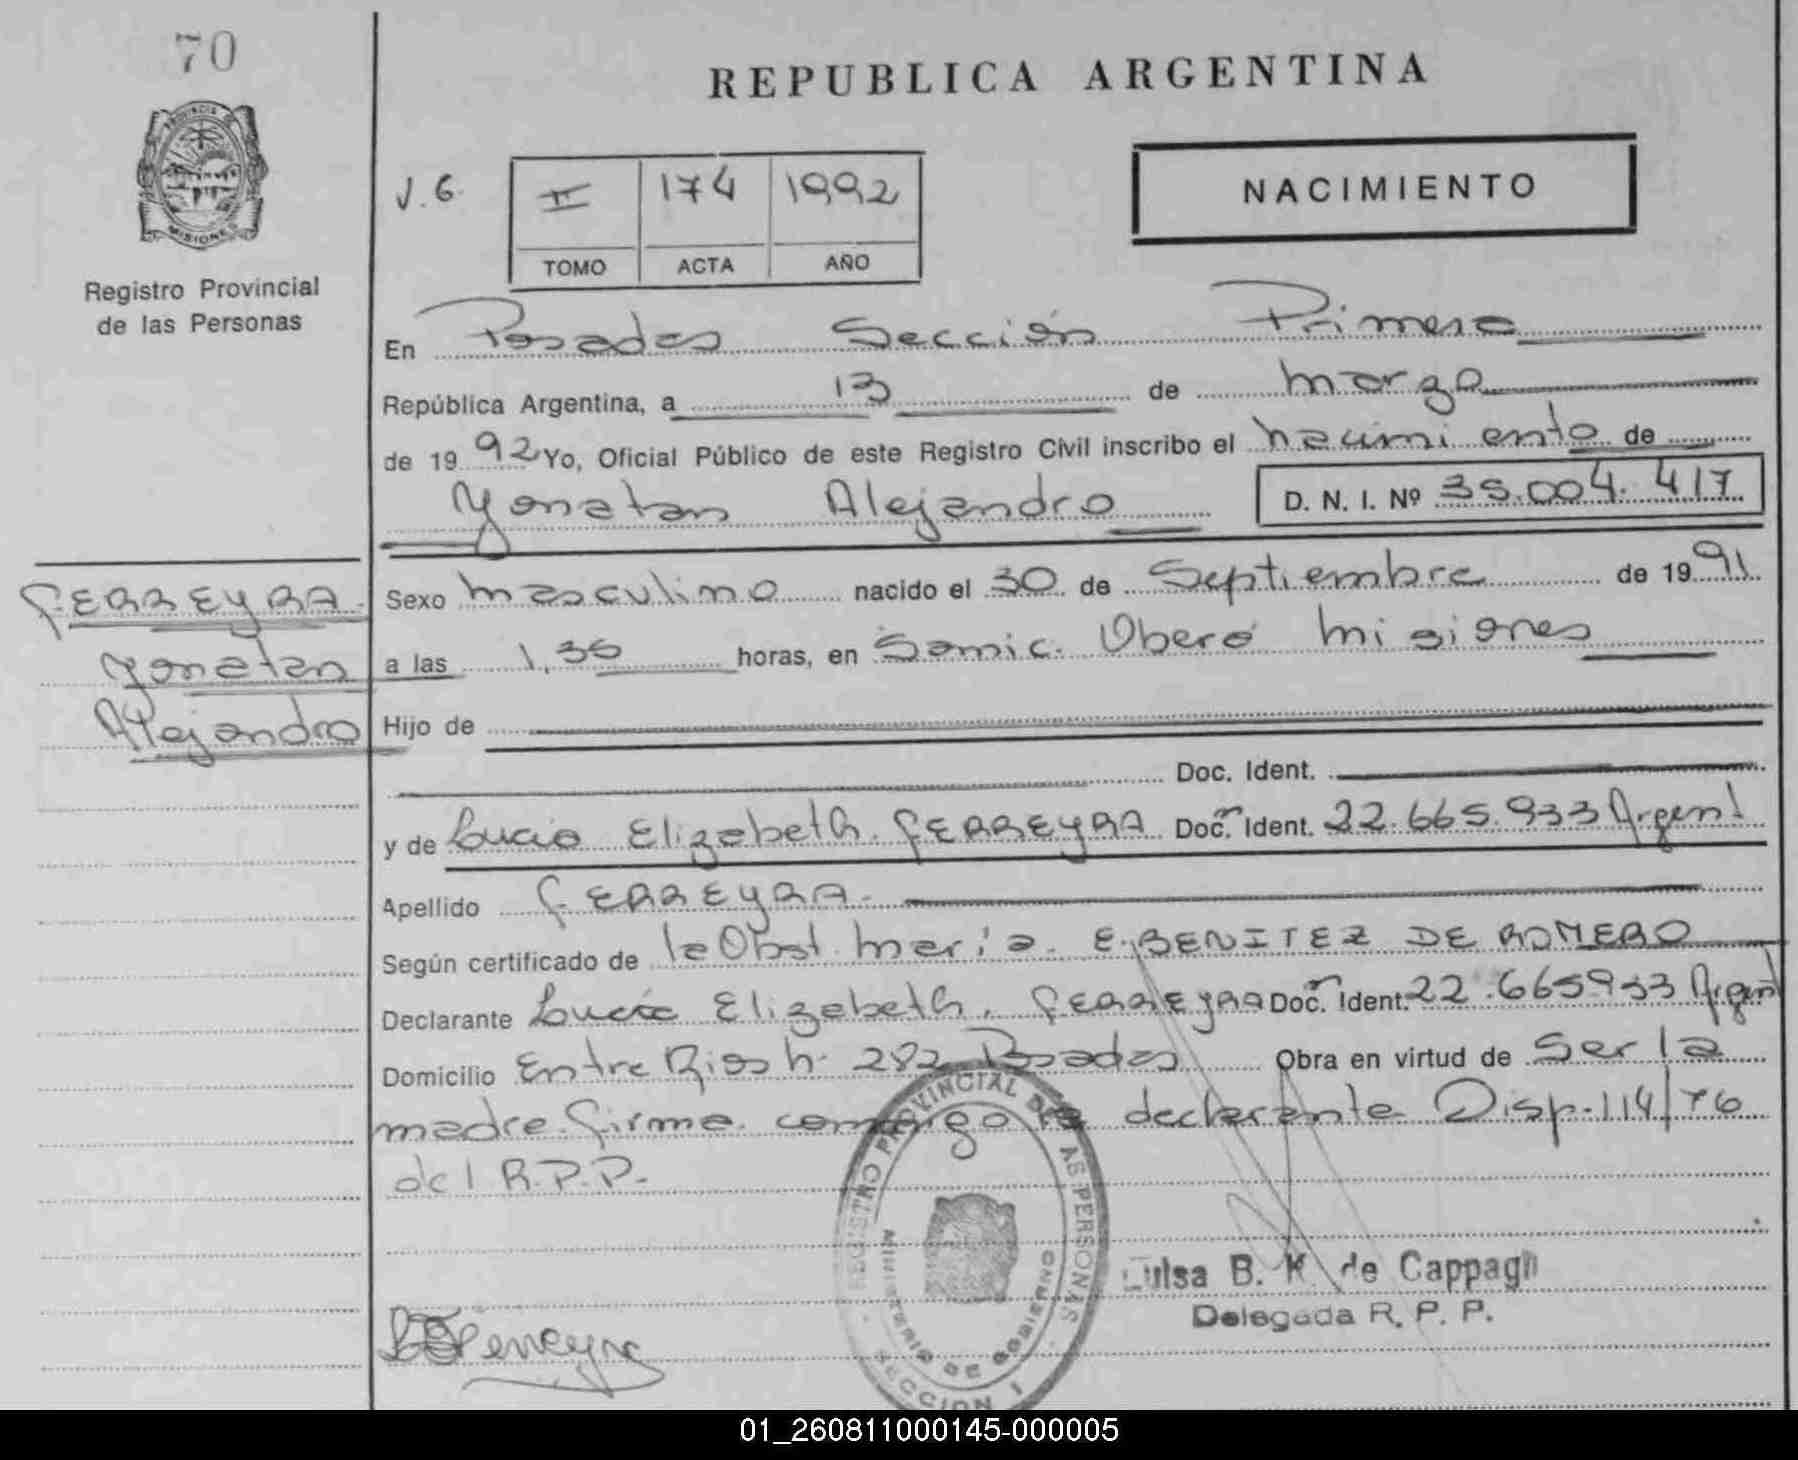 70
REPUBLICA ARGENTINA
PROVINCIA DE
MISIONES
Registro Provincial
de las Personas
J. G.
II 174 1992
TOMO ACTA AÑO
NACIMIENTO
En Posadas Sección Primera
República Argentina, a 13 de marzo
de 19 92 Yo, Oficial Público de este Registro Civil inscribo el nacimiento de
Yonatan Alejandro D. N. I. Nº 35.004.417
FERREYRA
Yonatan
Alejandro
Sexo masculino nacido el 30 de Septiembre de 19 91
a las 1,35 horas, en Samic. Oberá Misiones
Hijo de
Doc. Ident.
y de Lucia Elizabeth FERREYRA Doc. Ident. 22.665.933 Argent
Apellido FERREYRA
Según certificado de la Obst. Maria E. BENITEZ DE ROMERO
Declarante Lucia Elizabeth FERREYRA Doc. Ident. 22.665933 Argent
Domicilio Entre Rios n. 282 Posadas Obra en virtud de Ser la
madre. firma conmigo la declarante Disp. 114/76
del R.P.P.
REGISTRO PROVINCIAL DE LAS PERSONAS
MINISTERIO DE GOBIERNO
SECCION 1
B. K. de Cappagli
Delegada R. P. P.
Ferreyra
01_260811000145-000005